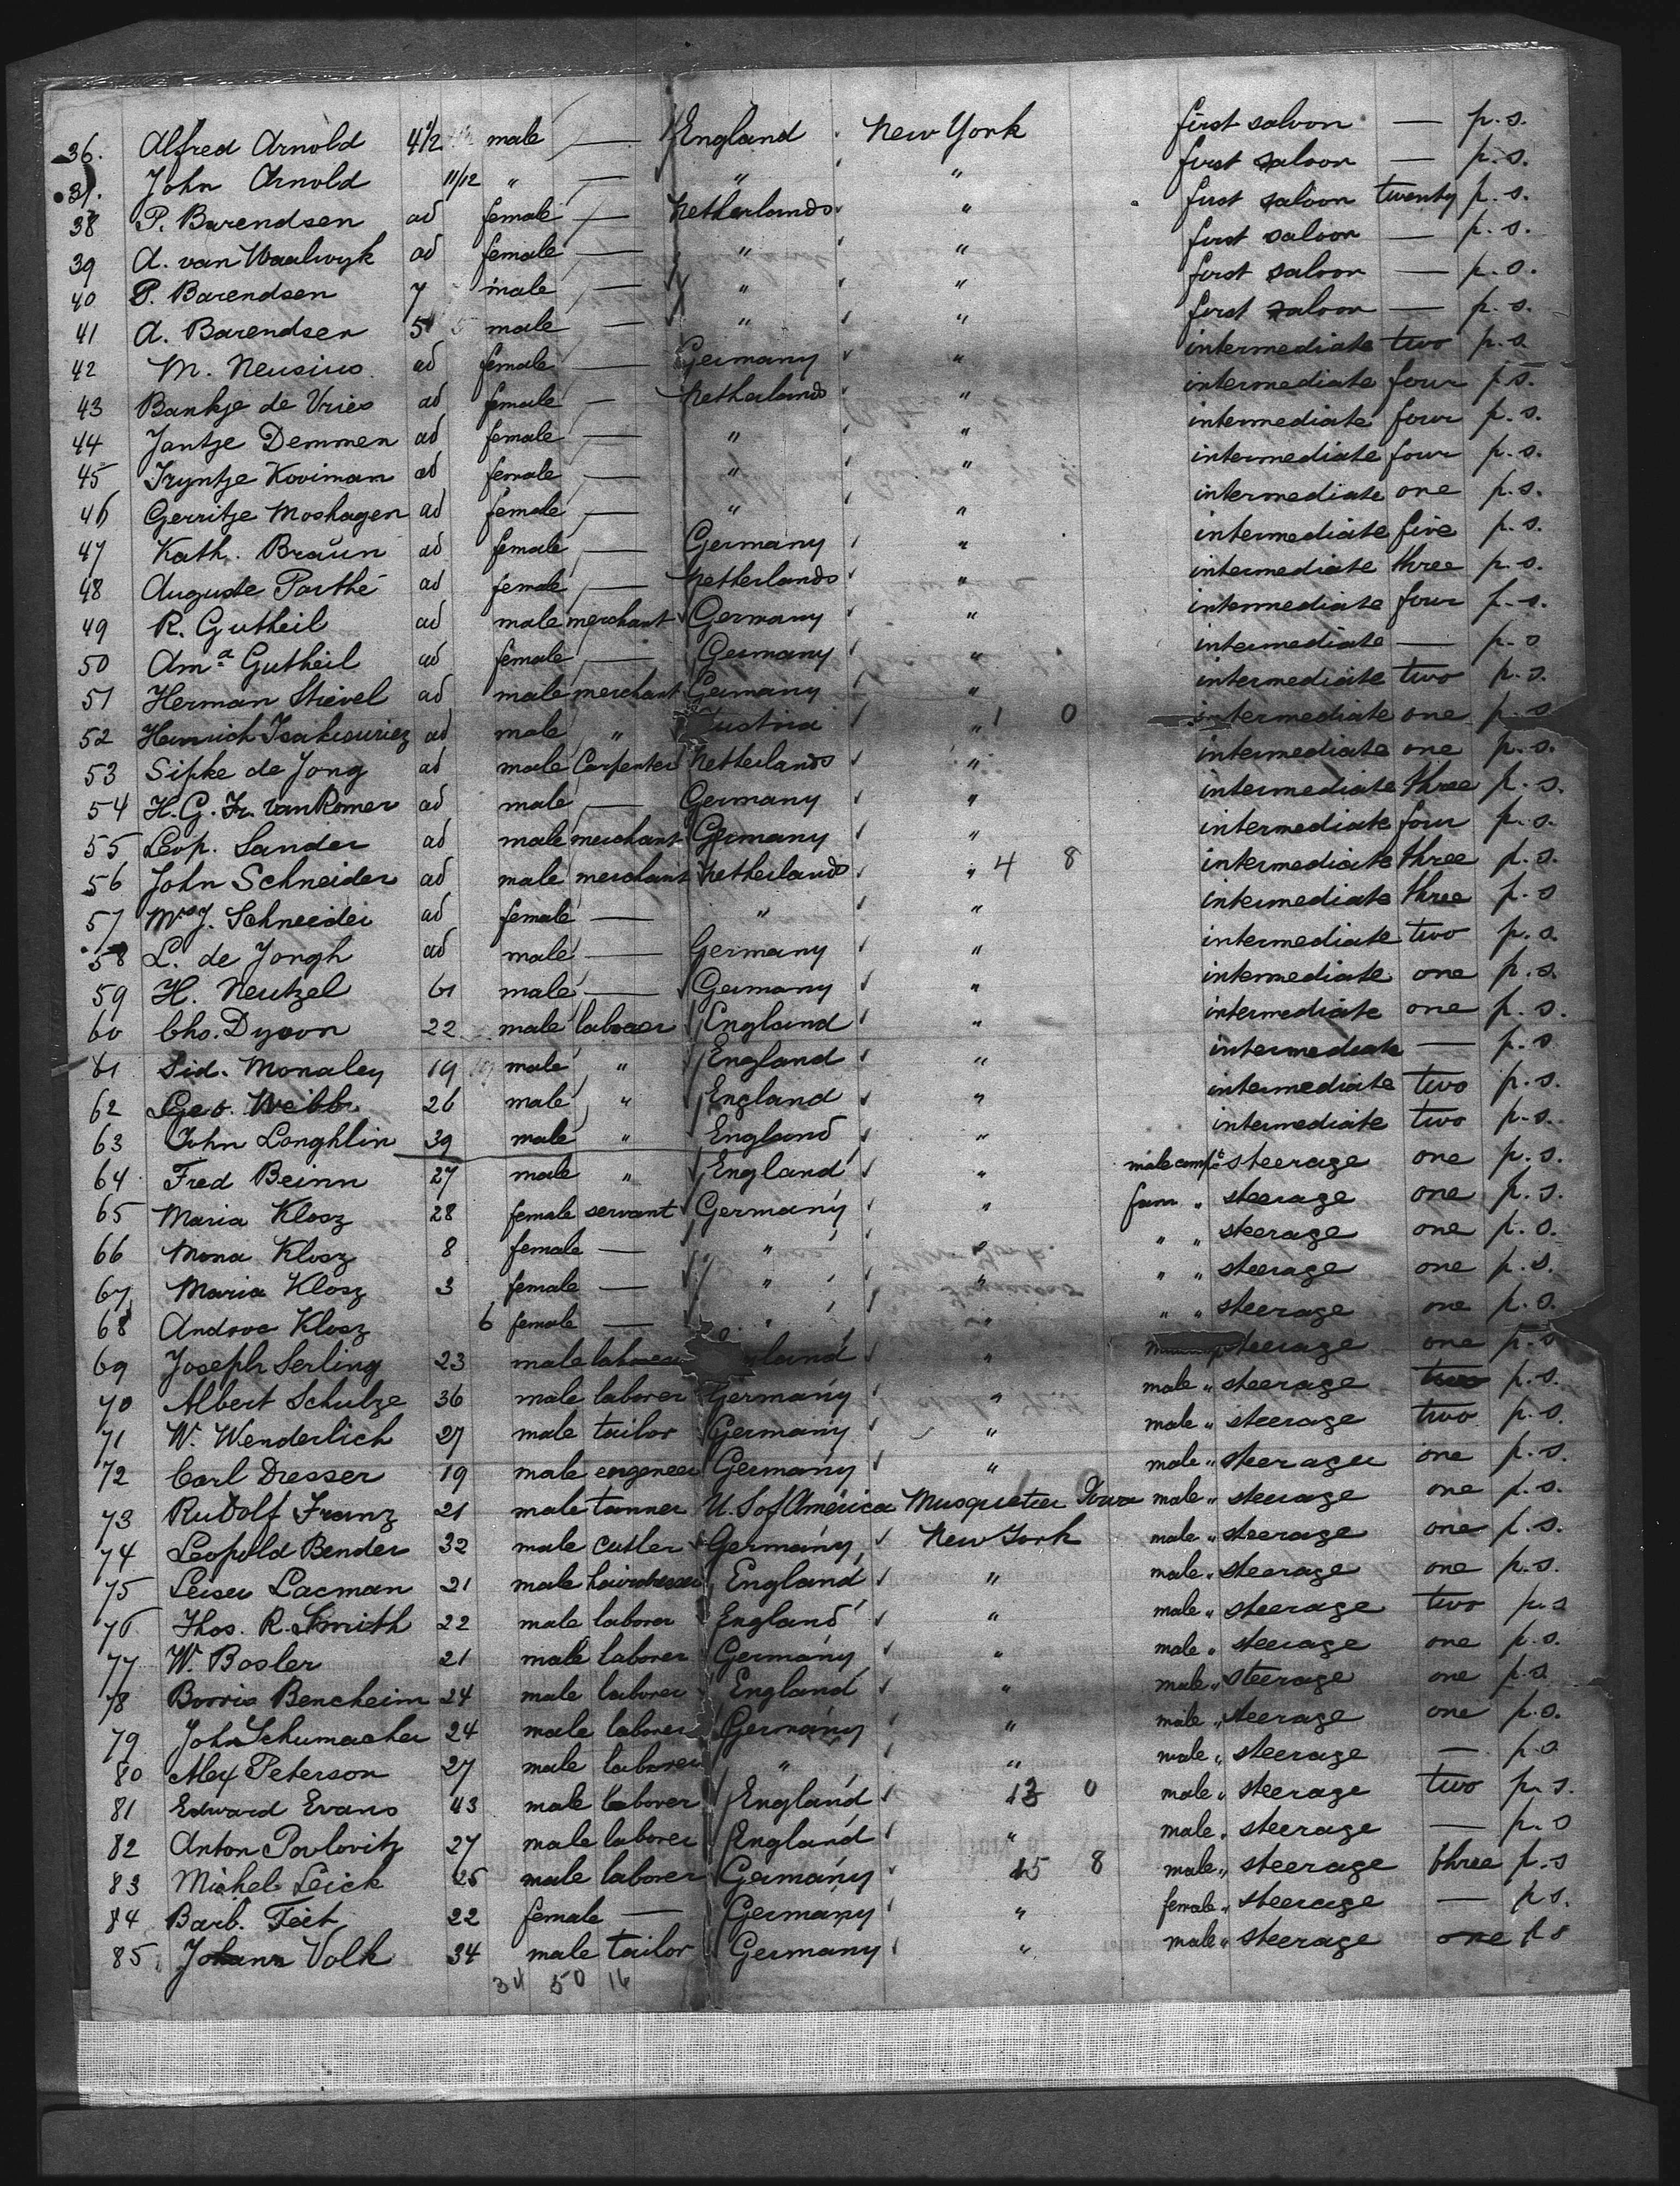 36. Alfred Arnold 4 1/2 male — England New York first saloon — p.s.
37. John Arnold 11/12 " — " " first saloon — p.s.
38 P. Barendsen ad female — Netherlands " first saloon twenty p.s.
39 A. van Waalwyk ad female — " " first saloon — p.s.
40 P. Barendsen 7 male — " " first saloon — p.s.
41 A. Barendsen 5 male — " " first saloon — p.s.
42 M. Neusius ad female — Germany " intermediate two p.s.
43 Bankje de Vries ad female — Netherlands " intermediate four p.s.
44 Jantje Demmen ad female — " " intermediate four p.s.
45 Tryntje Kooiman ad female — " " intermediate four p.s.
46 Gerritje Moshagen ad female — " " intermediate one p.s.
47 Kath. Braun ad female — Germany " intermediate five p.s.
48 Auguste Parthé ad female — Netherlands " intermediate three p.s.
49 R. Gutheil ad male merchant Germany " intermediate four p.s.
50 Ama Gutheil ad female — Germany " intermediate — p.s
51 Herman Stievel ad male merchant Germany " intermediate two p.s.
52 Heinrich ad male " Austria " 1 0 intermediate one p.s
53 Sipke de Jong ad male Carpenter Netherlands " intermediate one p.s.
54 H. G. Fr. van Romer ad male — Germany " intermediate three p.s.
55 Leop. Sander ad male merchant Germany " intermediate four p.s.
56 John Schneider ad male merchant Netherlands " 4 8 intermediate three p.s.
57 Mrs J. Schneider ad female — " " intermediate three p.s
58 L. de Jongh ad male — Germany " intermediate two p.s.
59 H. Neutzel 61 male — Germany " intermediate one p.s.
60 Chs. Dyson 22 male laborer England " intermediate one p.s.
61 Sid. Monaley 19 male " England " intermediate — p.s
62 Geo. Webb 26 male " England " intermediate two p.s.
63 John Longhlin 39 male " England " intermediate two p.s.
64 Fred Beinn 27 male " England " male compt steerage one p.s.
65 Maria Klosz 28 female servant Germany " fam " steerage one p.s.
66 Mona Klosz 8 female — " " " " steerage one p.s.
67 Maria Klosz 3 female — " " " " steerage one p.s.
68 Androa Klosz 6 female — " " " " steerage one p.s.
69 Joseph Serling 23 male laborer land " steerage one p.s
70 Albert Schulze 36 male laborer Germany " male " steerage two p.s.
71 W. Wenderlich 27 male tailor Germany " male " steerage two p.s.
72 Carl Dresser 19 male engeneer Germany " male " steerage one p.s.
73 Rudolf Franz 21 male tanner U. S of America Musquetier Iowa male " steerage one p.s.
74 Leopold Bender 32 male cutler Germany New York male " steerage one p.s.
75 Leiser Lacman 21 male hairdresser England " male " steerage one p.s.
76 Thos. R. Smith 22 male laborer England " male " steerage two p.s
77 W. Bosler 21 male laborer Germany " male " steerage one p.s.
78 Borris Bencheim 24 male laborer England " male " steerage one p.s.
79 John Schumacher 24 male laborer Germany " male " steerage one p.s.
80 Alex Peterson 27 male laborer " " male " steerage — p.s
81 Edward Evans 43 male laborer England 13 0 male " steerage two p.s.
82 Anton Povlovitz 27 male laborer England " male " steerage — p.s
83 Michel Leick 25 male laborer Germany 15 8 male " steerage three p.s
84 Barb. Feit 22 female — Germany " female " steerage — p.s.
85 Johann Volk 34 male tailor Germany " male " steerage one p.s
34 50 16